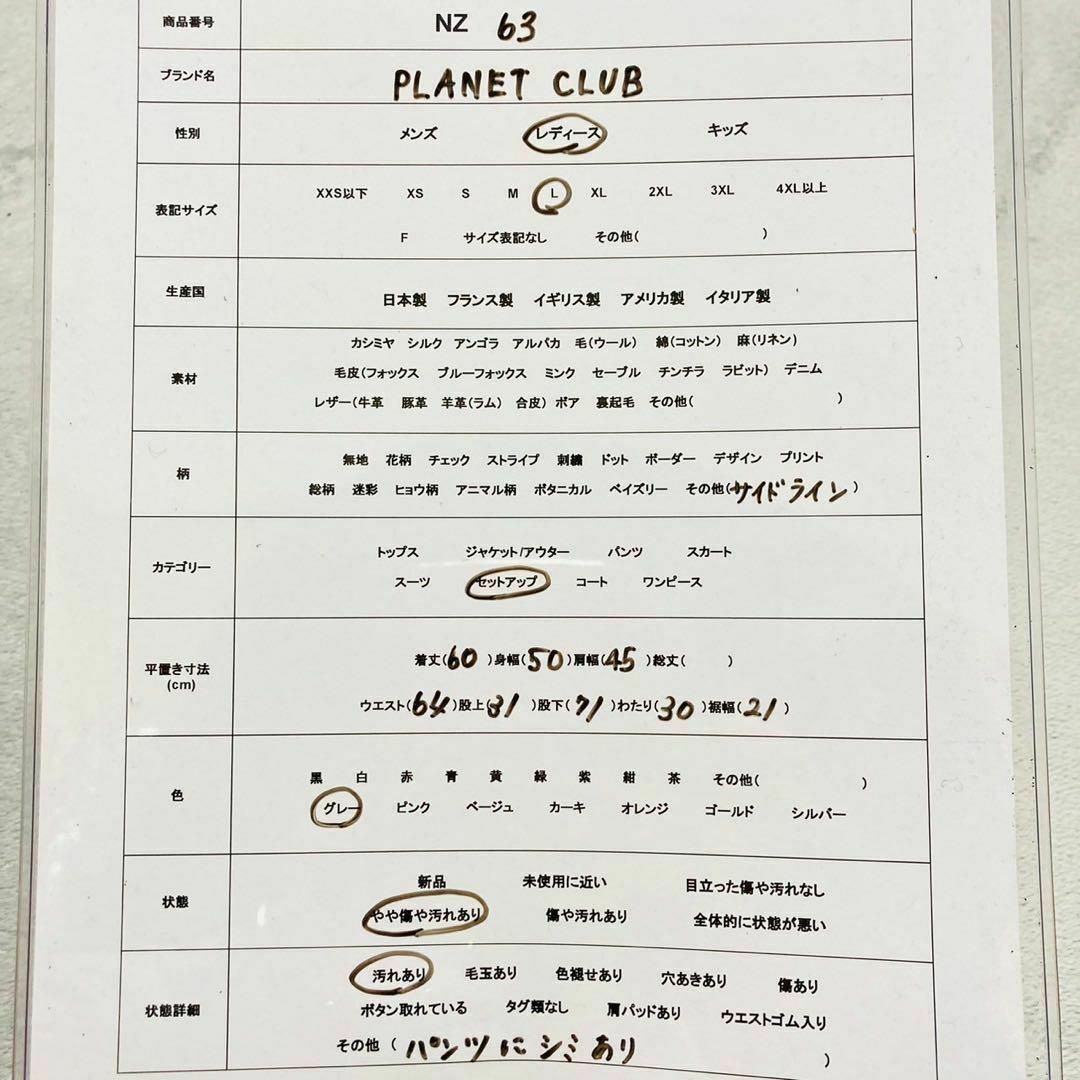 商品番号 NZ 63
ブランド名 PLANET CLUB
性別 メンズ レディース キッズ
XXS以下 XS S M L XL 2XL 3XL 4XL以上
表記サイズ
F サイズ表記なし その他( )
生産国 日本製 フランス製 イギリス製 アメリカ製 イタリア製
カシミヤ シルク アンゴラ アルパカ 毛(ウール) 綿(コットン) 麻(リネン)
素材 毛皮(フォックス ブルーフォックス ミンク セーブル チンチラ ラビット) デニム
レザー(牛革 豚革 羊革(ラム) 合皮) ボア 裏起毛 その他( )
無地 花柄 チェック ストライプ 刺繍 ドット ボーダー デザイン プリント
柄
総柄 迷彩 ヒョウ柄 アニマル柄 ボタニカル ペイズリー その他(サイドライン)
トップス ジャケット/アウター パンツ スカート
カテゴリー
スーツ セットアップ コート ワンピース
着丈(60)身幅(50)肩幅(45)総丈( )
平置き寸法
(cm)
ウエスト(64)股上(31)股下(71)わたり(30)裾幅(21)
黒 白 赤 青 黄 緑 紫 紺 茶 その他( )
色
グレー ピンク ベージュ カーキ オレンジ ゴールド シルバー
新品 未使用に近い 目立った傷や汚れなし
状態
やや傷や汚れあり 傷や汚れあり 全体的に状態が悪い
汚れあり 毛玉あり 色褪せあり 穴あきあり 傷あり
状態詳細 ボタン取れている タグ類なし 肩パッドあり ウエストゴム入り
その他 (パンツにシミあり)